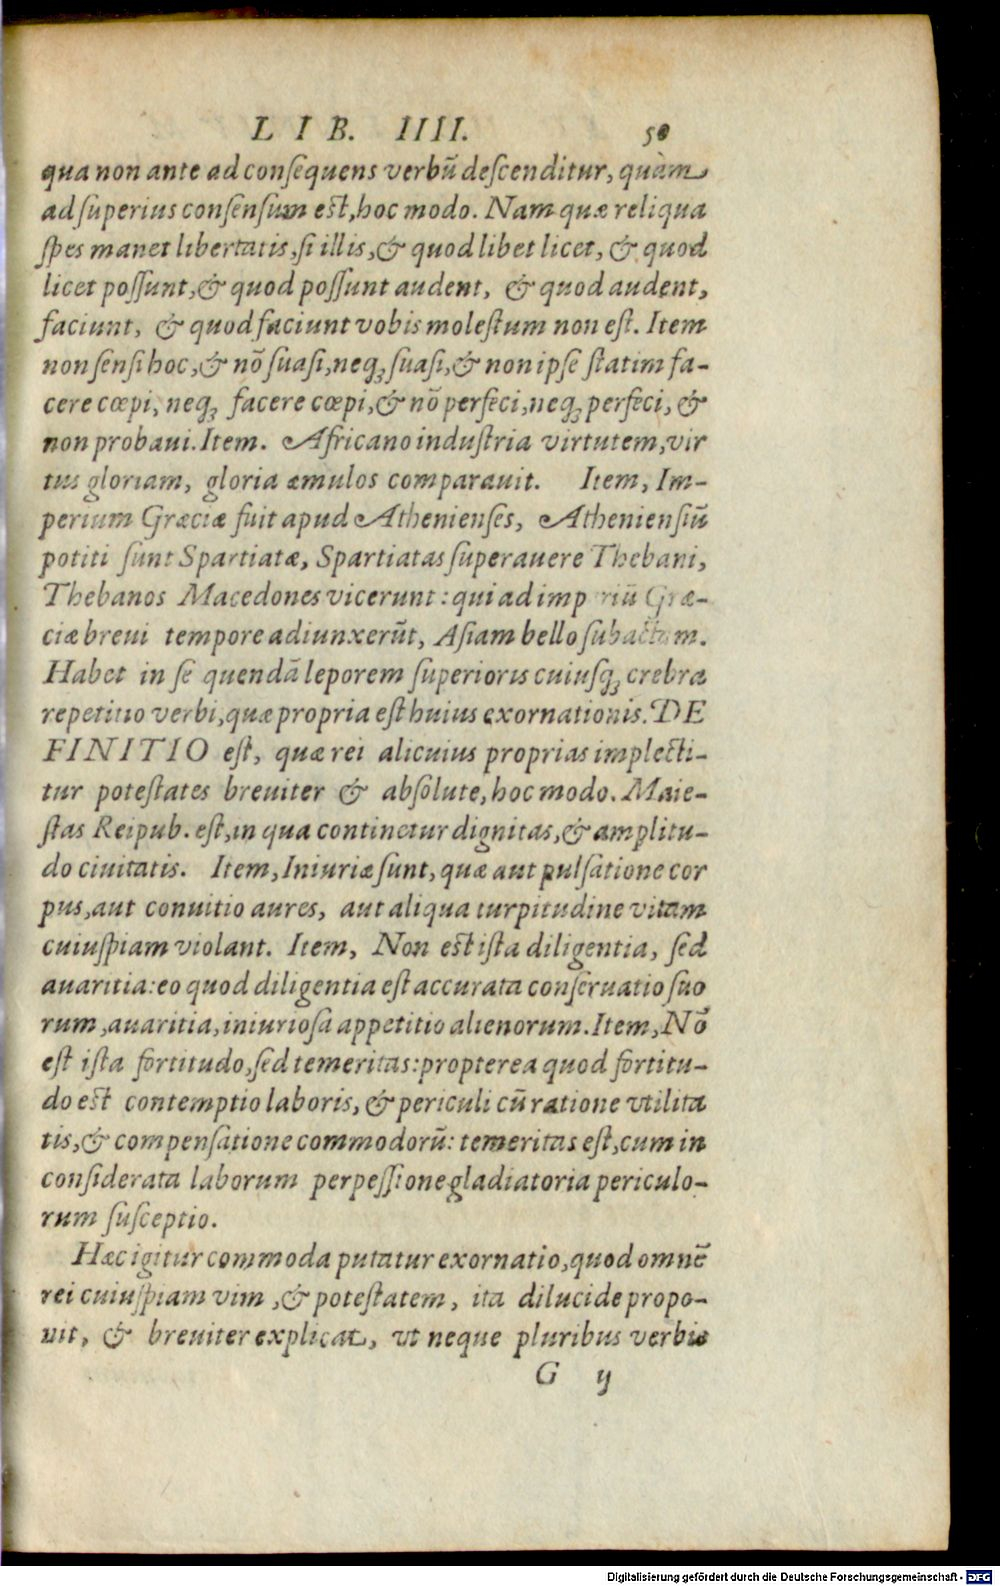 LIB. IIII. 50
qua non ante ad conſequens verbū deſcenditur, quàm
ad ſuperius conſenſum est, hoc modo. Nam quæ reliqua
ſpes manet libertatis, ſi illis, & quod libet licet, & quod
licet poſſunt, & quod poſſunt audent, & quod audent,
faciunt, & quod faciunt vobis moleſtum non eſt. Item
non ſenſi hoc, & nō ſuaſi, neqꝫ ſuaſi, & non ipſe ſtatim fa-
cere cœpi, neqꝫ facere cœpi, & nō perfeci, neqꝫ perfeci, &
non probaui. Item. Africano induſtria virtutem, vir
tus gloriam, gloria æmulos comparauit. Item, Im-
perium Græciæ fuit apud Athenienſes, Athenienſiū
potiti ſunt Spartiatæ, Spartiatas ſuperauere Thebani,
Thebanos Macedones vicerunt: qui ad imp riū Græ-
ciæ breui tempore adiunxerūt, Aſiam bello ſubactam.
Habet in ſe quendā leporem ſuperioris cuiuſqꝫ crebra
repetitio verbi, quæ propria eſt huius exornationis. DE
FINITIO eſt, quæ rei alicuius proprias implecti-
tur poteſtates breuiter & abſolute, hoc modo. Maie-
ſtas Reipub. eſt, in qua continetur dignitas, & amplitu-
do ciuitatis. Item, Iniuriæ ſunt, quæ aut pulſatione cor
pus, aut conuitio aures, aut aliqua turpitudine vitam
cuiuſpiam violant. Item, Non eſt iſta diligentia, ſed
auaritia: eo quod diligentia eſt accurata conſeruatio ſuo
rum, auaritia, iniurioſa appetitio alienorum. Item, Nō
eſt iſta fortitudo, ſed temeritas: propterea quod fortitu-
do eſt contemptio laboris, & periculi cū ratione vtilita
tis, & compenſatione commodorū: temeritas eſt, cum in
conſiderata laborum perpeſſione gladiatoria periculo-
rum ſuſceptio.
Hæc igitur commoda putatur exornatio, quod omnē
rei cuiuſpiam vim, & poteſtatem, ita dilucide propo-
nit, & breuiter explicat, vt neque pluribus verbis
G ij
Digitalisierung gefördert durch die Deutsche Forschungsgemeinschaft - DFG